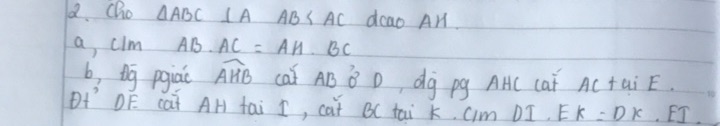 2. Cho ΔABC ⊥ A AB < AC đcao AH.
a, C/m AB. AC = AH. BC
b, Đg pgiác AHB cắt AB ở D, đg pg AHC cắt AC tại E.
Đt' DE cắt AH tại I, cắt BC tại K. C/m DI. EK = DK. EI.